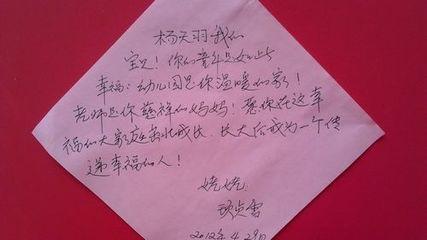 杨天羽我的
宝贝!你的童年是如此
幸福:幼儿园是你温暖的家!
老师是你慈祥的妈妈!愿你在这幸
福的大家庭茁壮成长.长大后成为一个传
递幸福的人!
姥姥:
2012年4.29日